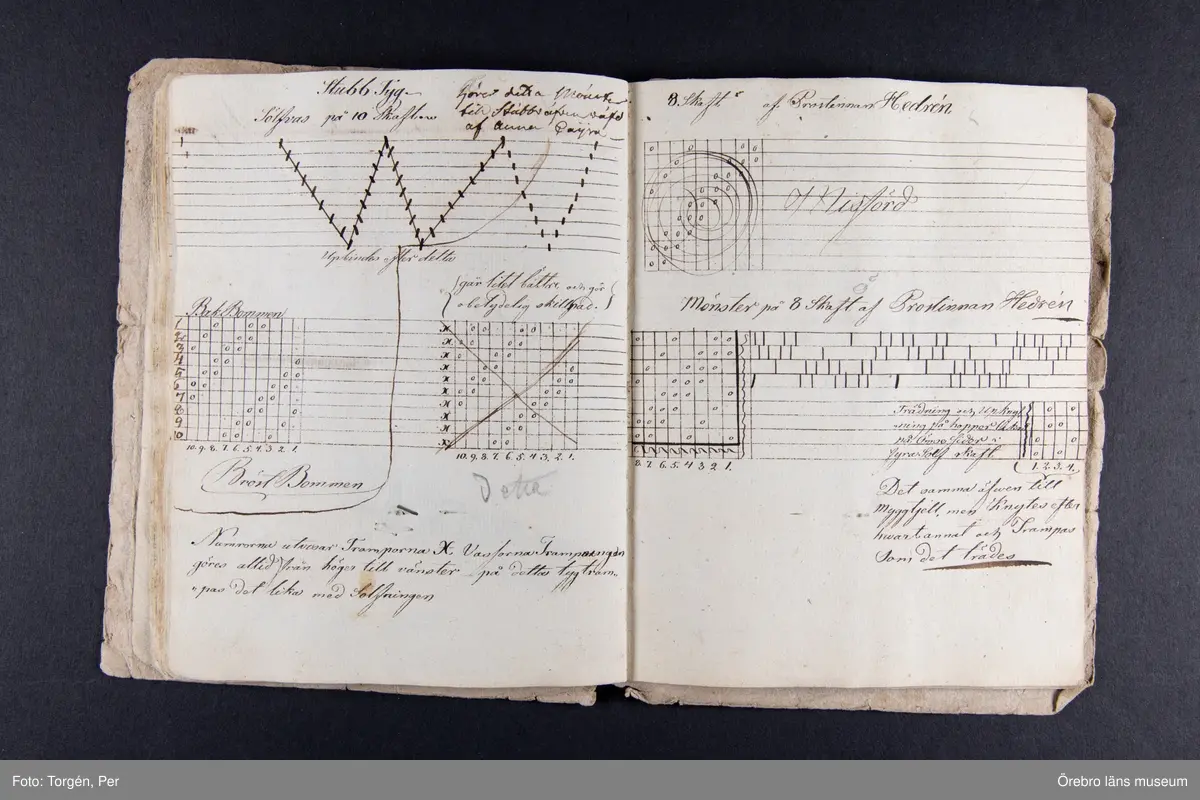 Stubb Tyg
Sölfvas på 10 Skaften
Göres detta Mönster
till Stubb
af Anna
Upbindes efter detta
går litet bättre och gör
obetydelig skillnad.
Bak Bommen
1
2
3
4
5
6
7
8
9
0
10. 9. 8. 7. 6. 5. 4. 3. 2. 1.
10. 9. 8. 7. 6. 5. 4. 3. 2. 1.
Bröst Bommen
Detta
Numrorna utvisar Tramporna X Vaftorna Trampningen
göres alltid från höger till vänster på detta tyg tram-
pas det lika med Solfningen
8 Skaft af Prostinnan Hedrén
Mönster på 8 Skaft af Prostinnan Hedrén
8. 7. 6. 5. 4. 3. 2. 1.
Trädning och
på
på Ömso Sidor
fyra Solf skaft
1. 2. 3. 4.
Det samma äfwen till
Myggtjell, men Knytes efter
hwarbannat och Trampas
Som det trädes
Foto: Torgén, Per
Örebro läns museum